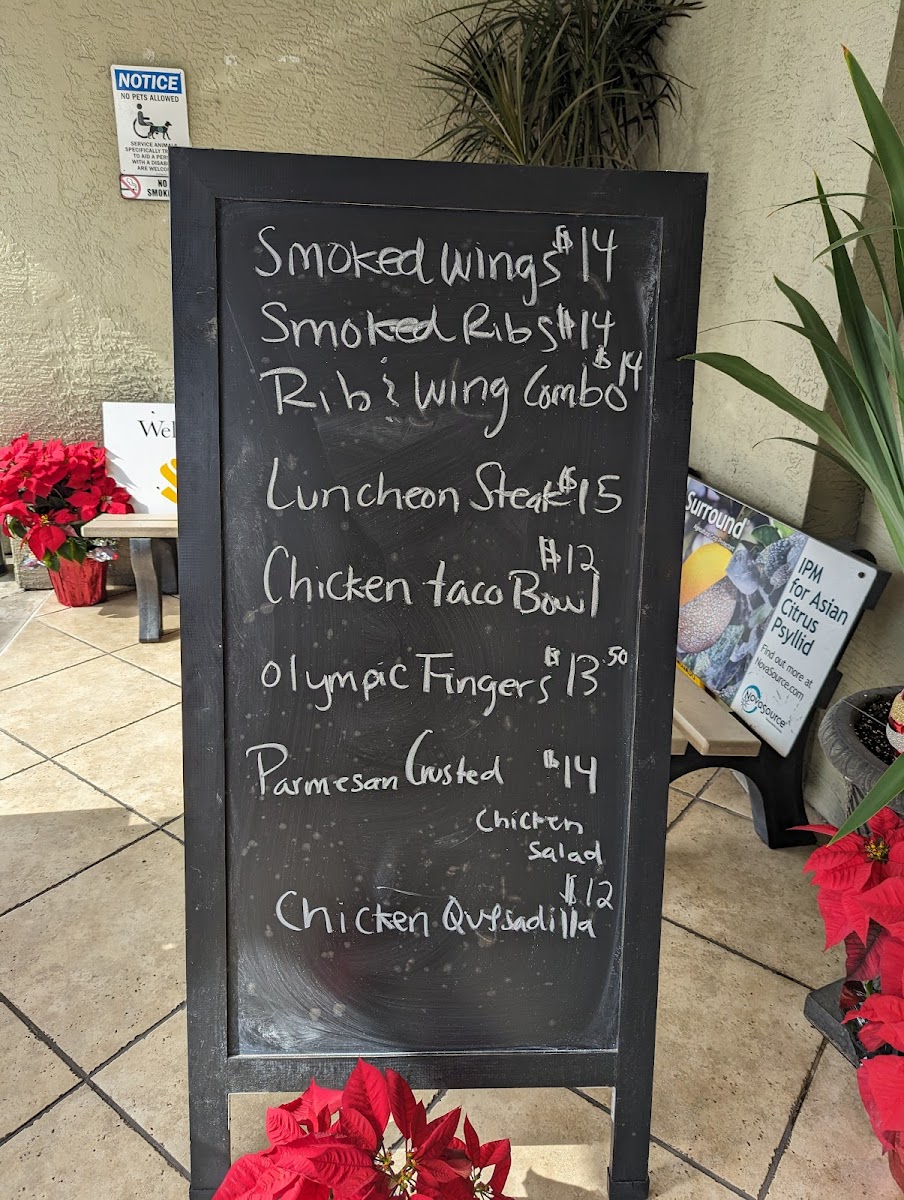 NOTICE
NO PETS ALLOWED
SERVICE ANIMALS
SPECIFICALLY
TO AID A
WITH A
ARE
NO
Smoked Wings $14
Smoked Ribs $14
Rib & Wing Combo $14
Luncheon Steak $15
$12
Chicken taco Bowl
Olympic Fingers $13.50
Parmesan Crusted $14
Chicken
Salad
$12
Chicken Quesadilla
Surround
IPM
for Asian
Citrus
Psyllid
Find out more at
NovaSource.com
NovaSource